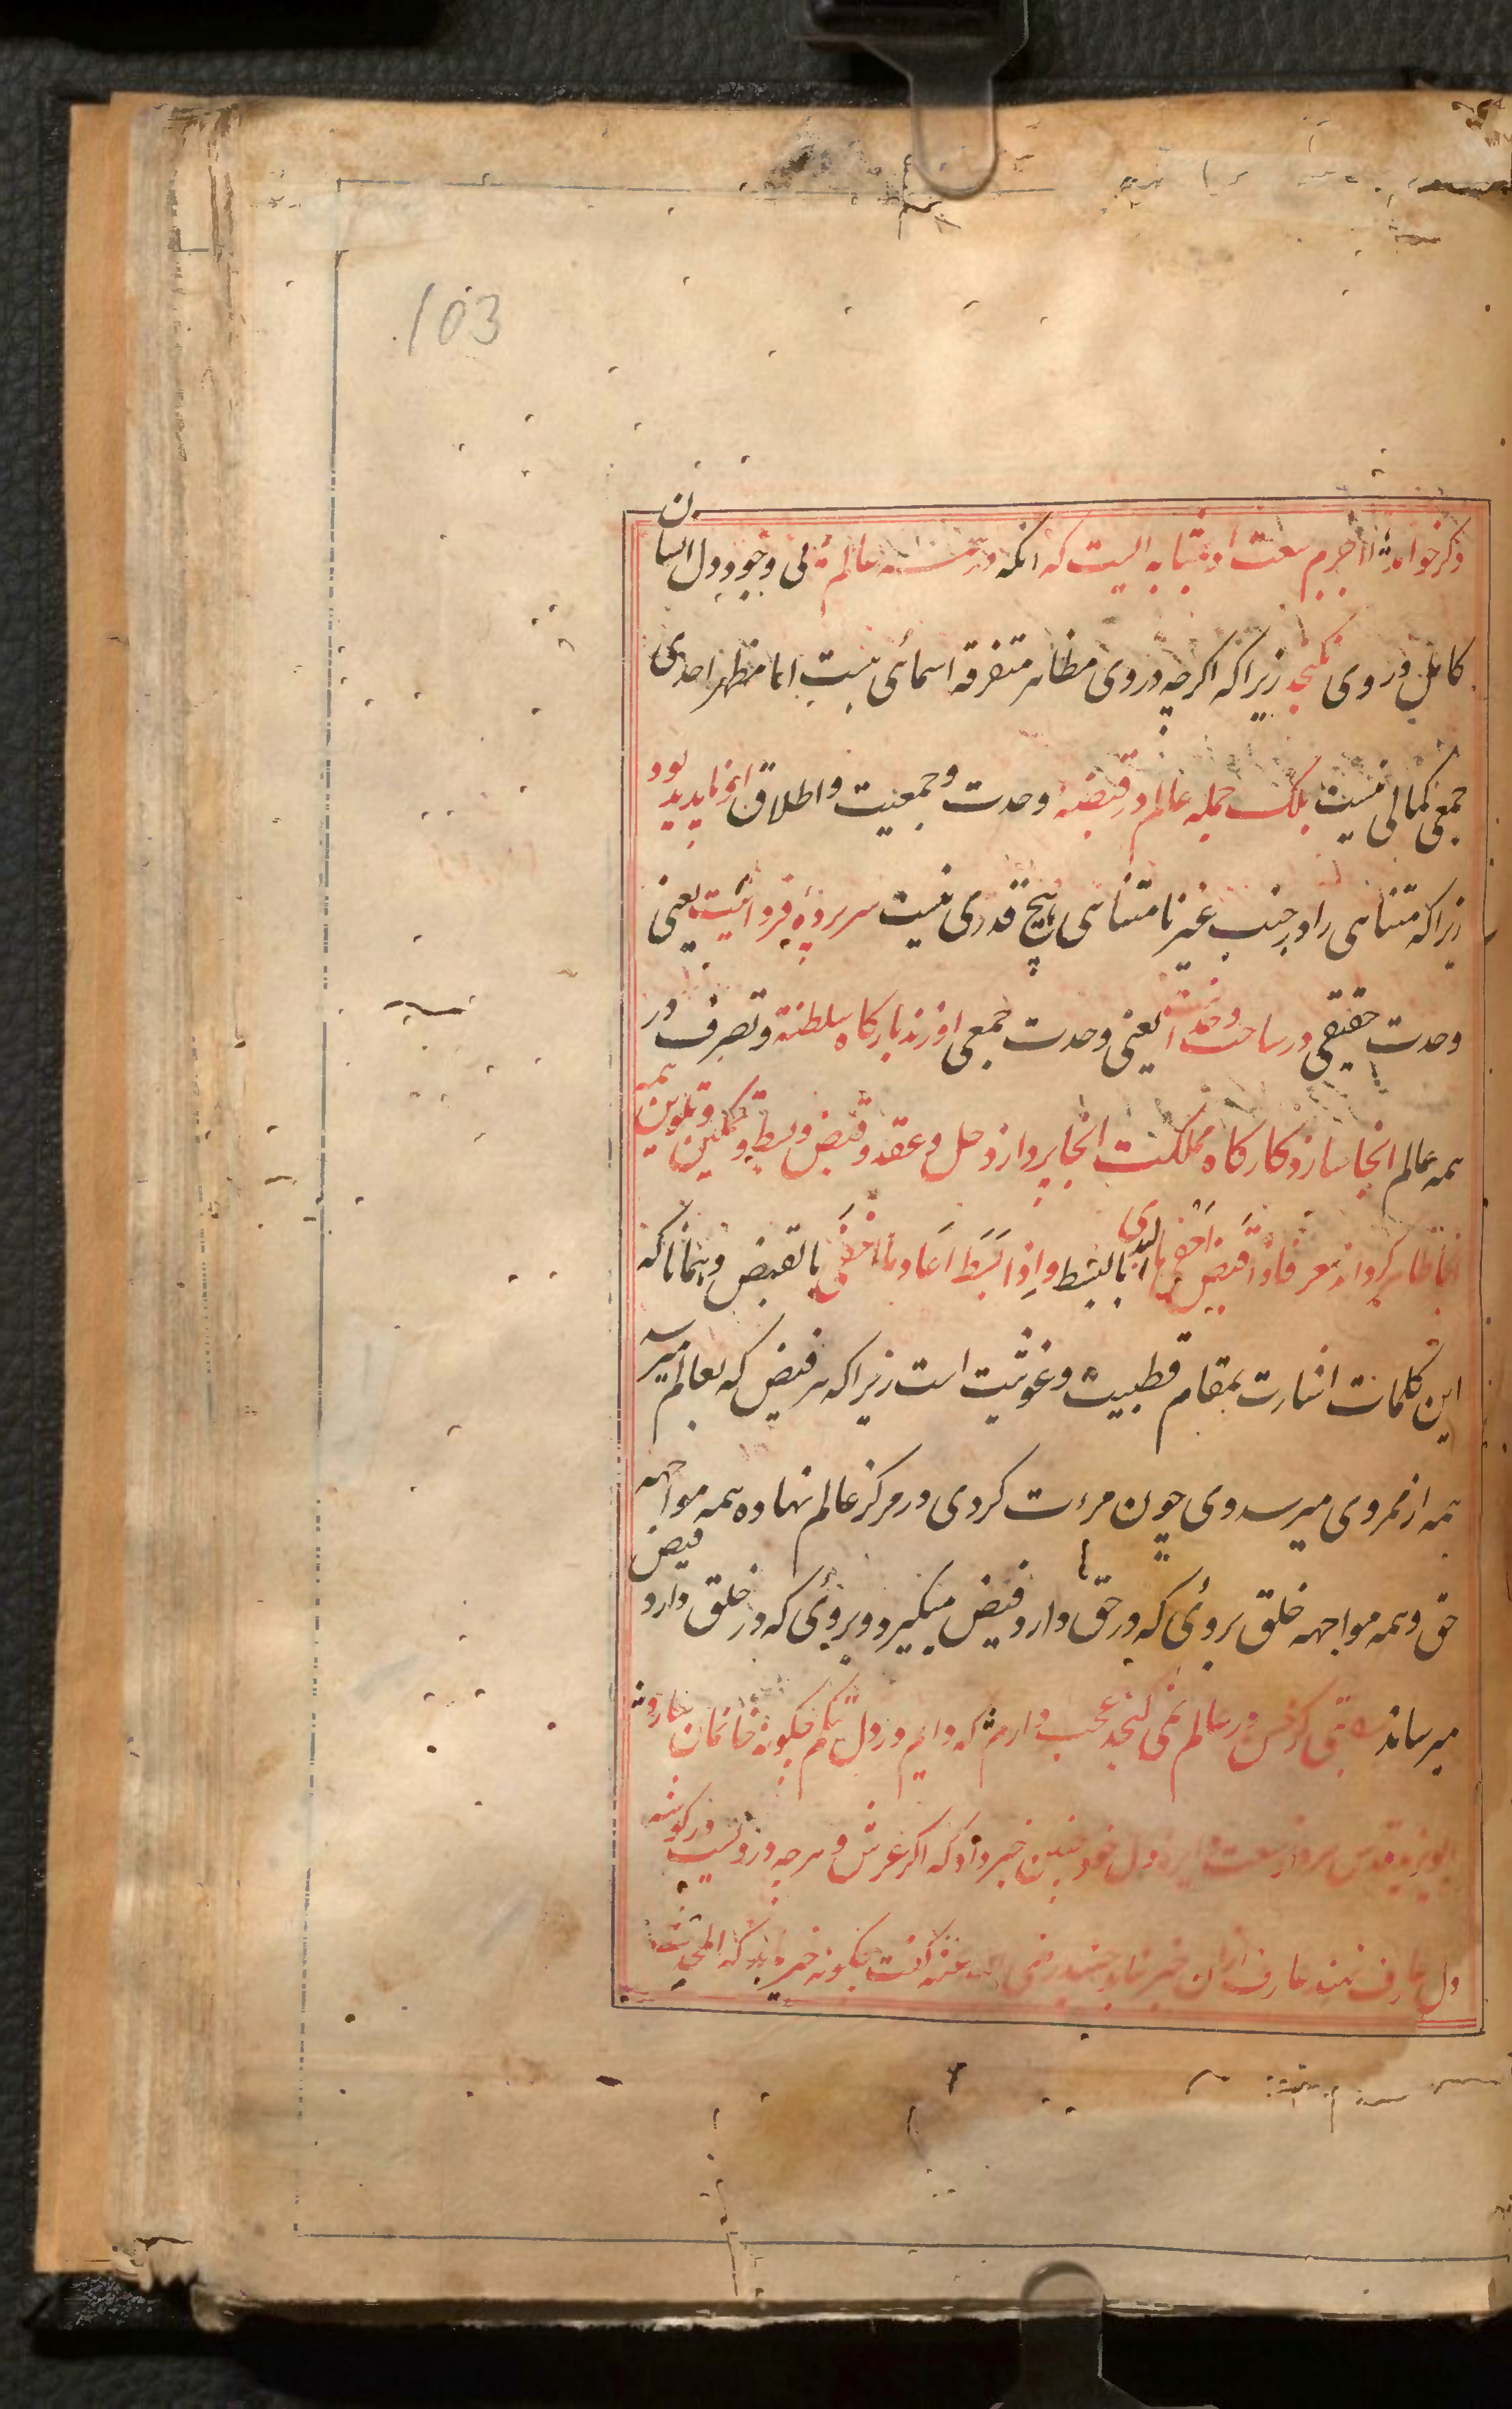 103
ذکر خواهد لاجرم سعت او بمثابه ایست که انکه در همه عالم یعنی بی وجود دل انسان
کامل در وی نکنجد زیرا که اکرچه در وی مظاهر متفرقه اسمائی هست اما مظهر احدی
جمعی کمالی نیست بلک جمله عالم در قبضهٔ وحدت و جمعیت و اطلاق او ناپدید بود
زیرا که متناهی را در جنب غیر نامتناهی هیچ قدری نیست سراپردهٔ فردانیت یعنی
وحدت حقیقی در ساحت وحدت یعنی وحدت جمعی او زند بارکاه سلطنة و تصرف در
همه عالم انجا سازد کارکاه مملکت انجا پردازد حل و عقد و قبض و بسط و تمکین و تلوین همه
انجا ظاهر کرداند معر فاذا قبض اخفی ما ابدی بالبسط و اذا بسط اعاد ما اخفی بالقبض و همانا که
این کلمات اشارت بمقام قطبیت و غوثیت است زیرا که هر فیض که بعالم میرسد
همه از ممر وی میرسد وی چون مرءات کردی در مرکز عالم نهاده همه مواجهه
حق و همه مواجهه خلق بروئی که در حق دارد فیض میکیرد و بروئی که در خلق دارد فیض
میرساند در عالم نمی کنجد عجب دارم که دایم در دل تنکم چکونه خانمان سازد
بویزید قدس سره از سعت دایره دل خود چنین خبر داد که اکر عرش و هرچه دروست در کوشه
دل عارف نهند عارف ازان خبر نیابد جنید رضی الله عنه کفت چکونه خبر یابد که المحدث